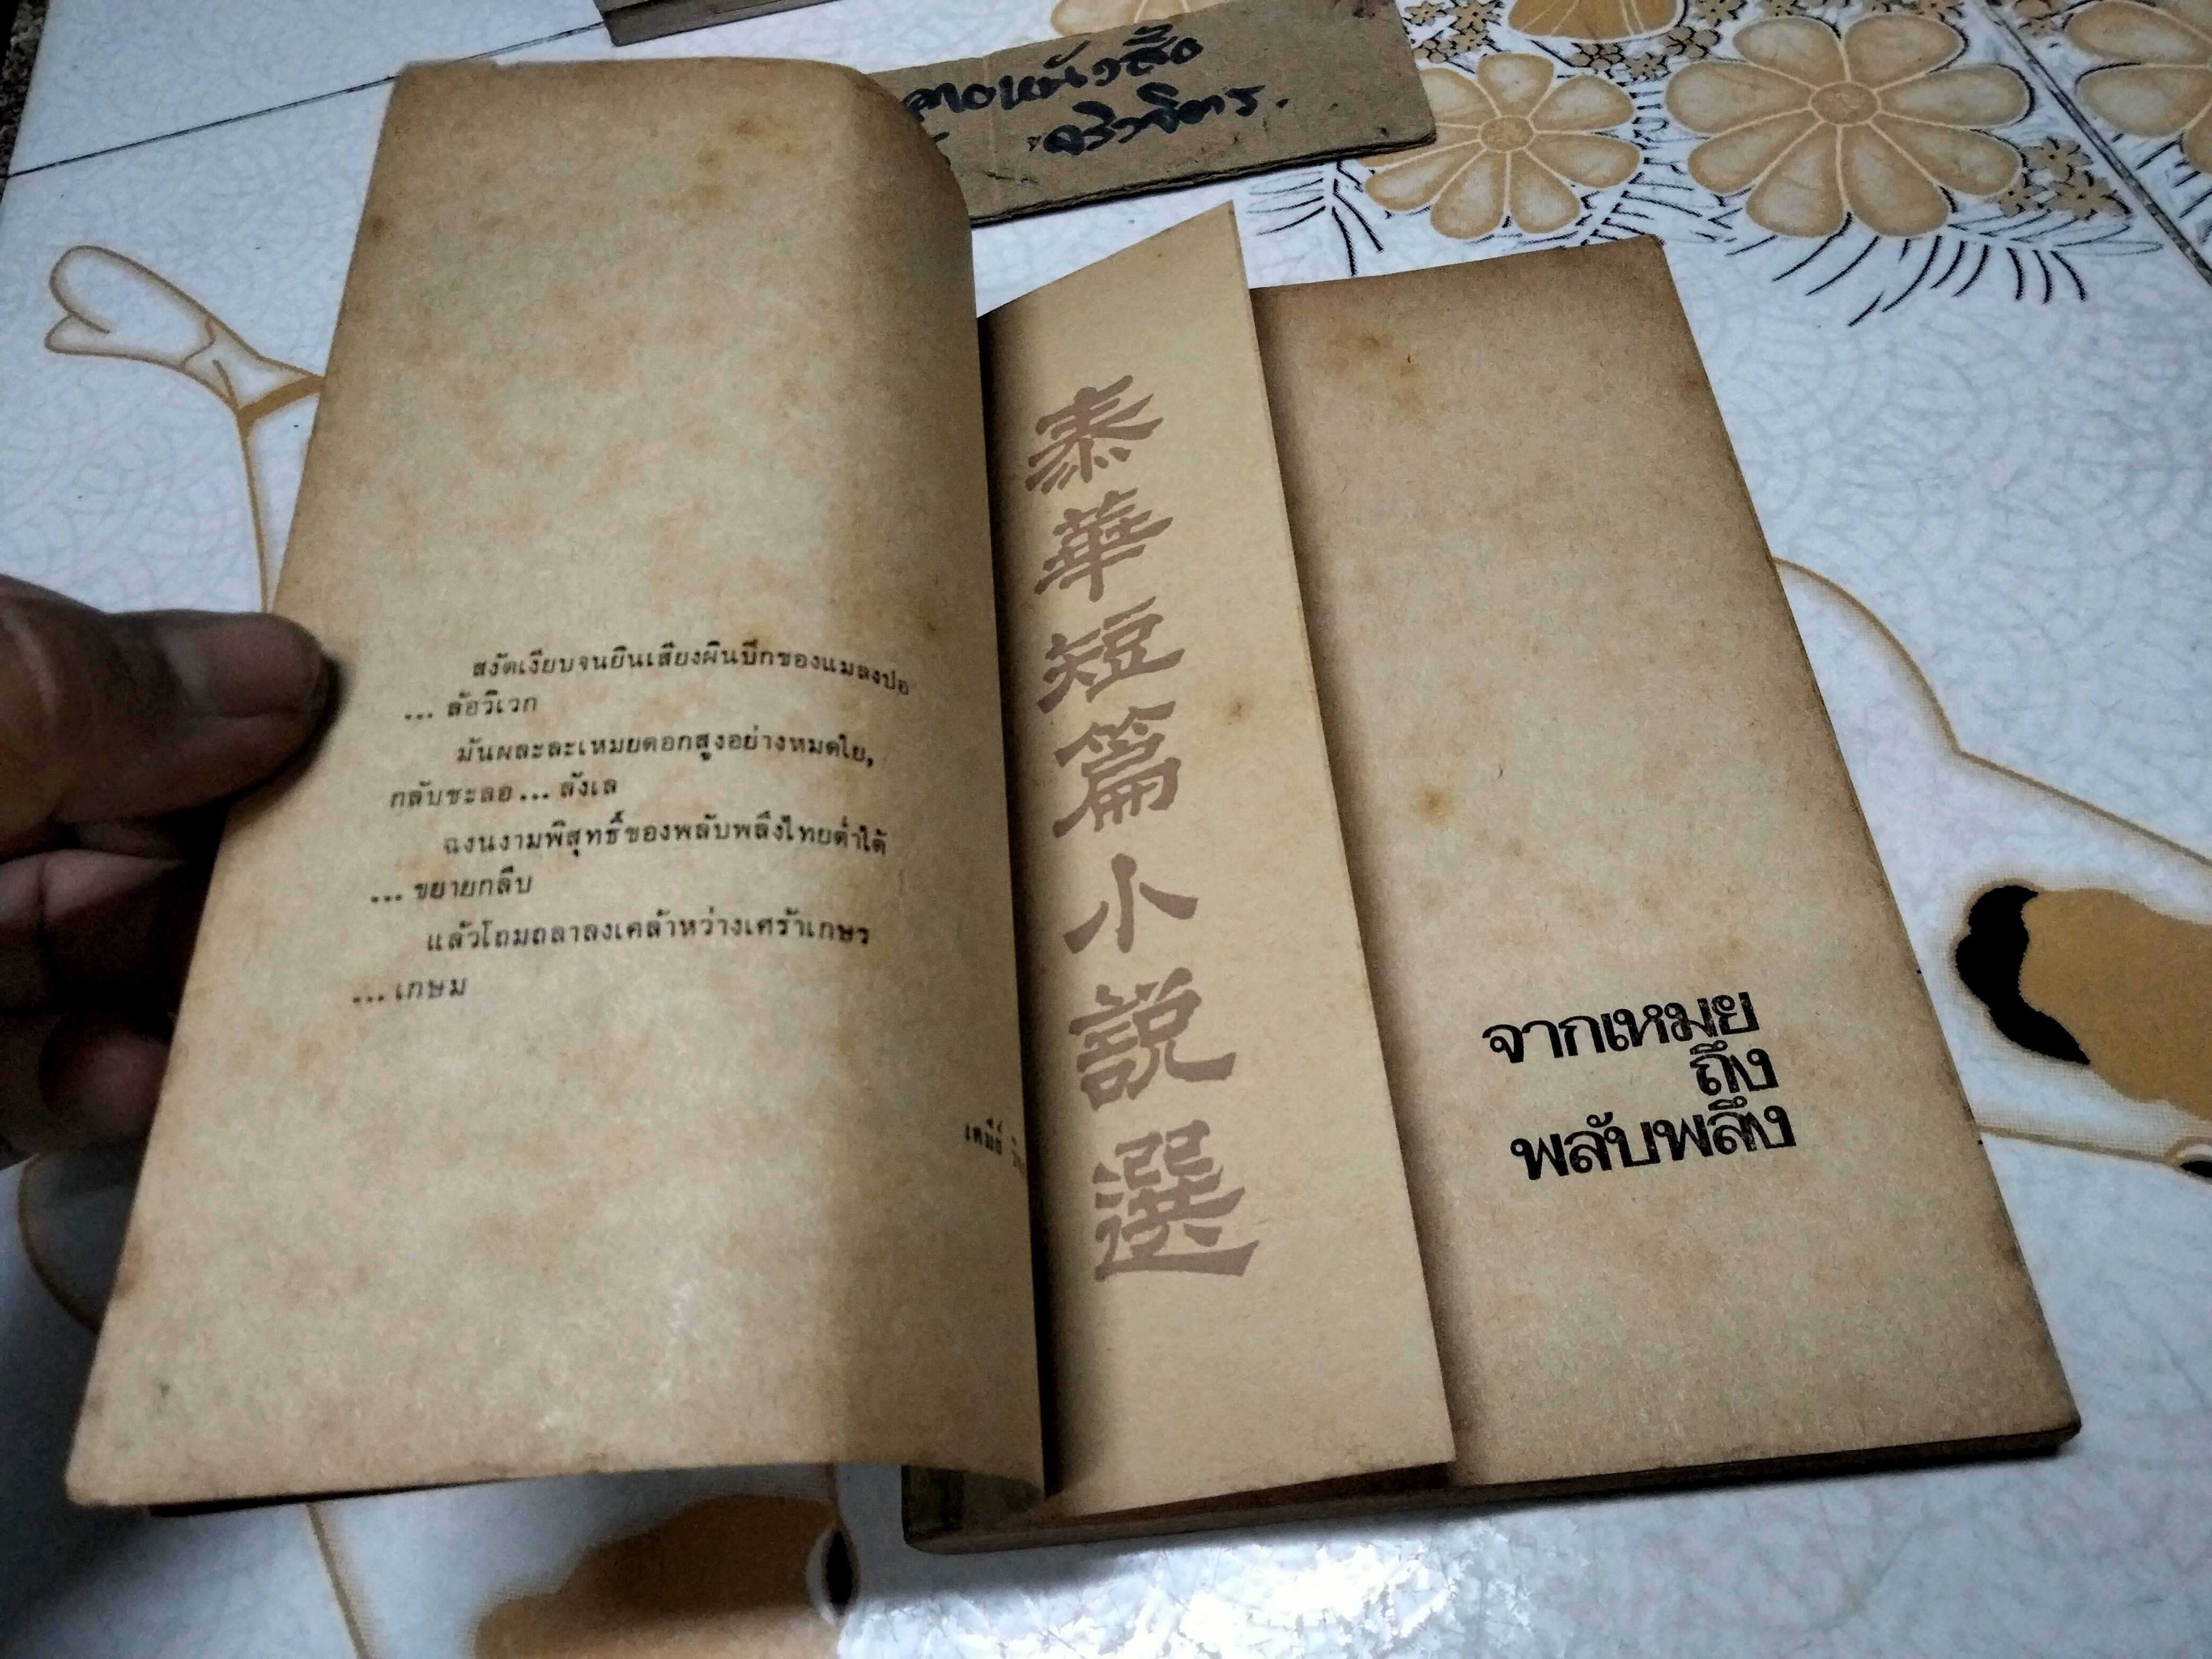 สงัดเงียบจนยินเสียงผินบีกของแมลงปอ
... ล้อวิเวก
มันผละละเหมยดอกสูงอย่างหมดใย,
กลับชะลอ... ลังเล
ฉงนงามพิสุทธิ์ของพลับพลึงไทยต่ำใต้
... ขยายกลีบ
แล้วโถมถลาลงเคล้าหว่างเศร้าเกษร
... เกษม
泰華短篇小説選
จากเหมย
ถึง
พลับพลึง